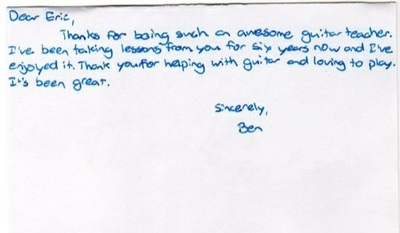 Dear Eric,
Thanks for being such an awesome guitar teacher.
I've been taking lessons from you for six years now and I've
enjoyed it. Thank you for helping with guitar and loving to play.
It's been great.
Sincerely,
Ben